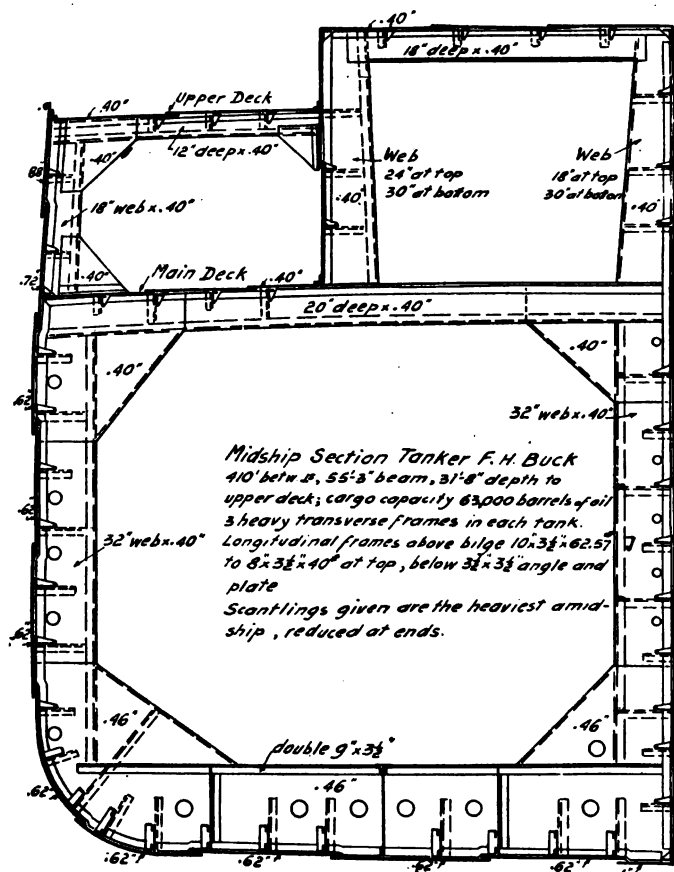 .40"
18" deep x .40"
Upper Deck
.40"
12" deep x .40"
.40"
Web
24" at top
30" at bottom
Web
18" at top
30" at bottom
.40"
.40"
18" web x .40"
.40"
.72"
Main Deck
.40"
20" deep x .40"
.40"
.40"
.62"
32" web x .40"
Midship Section Tanker F. H. Buck
410' betw. , 55'-3" beam, 31'-8" depth to
upper deck; cargo capacity 63,000 barrels of oil
3 heavy transverse frames in each tank.
Longitudinal frames above bilge 10" x 3½" x 62.57
to 8" x 3½" x 40# at top, below 3½" x 3½" angle and
plate
Scantlings given are the heaviest amid-
ship, reduced at ends.
.62"
32" web x .40"
.62"
.46"
.46"
double 9" x 3½"
.46"
.62"
.62"
.62"
.62"
.62"